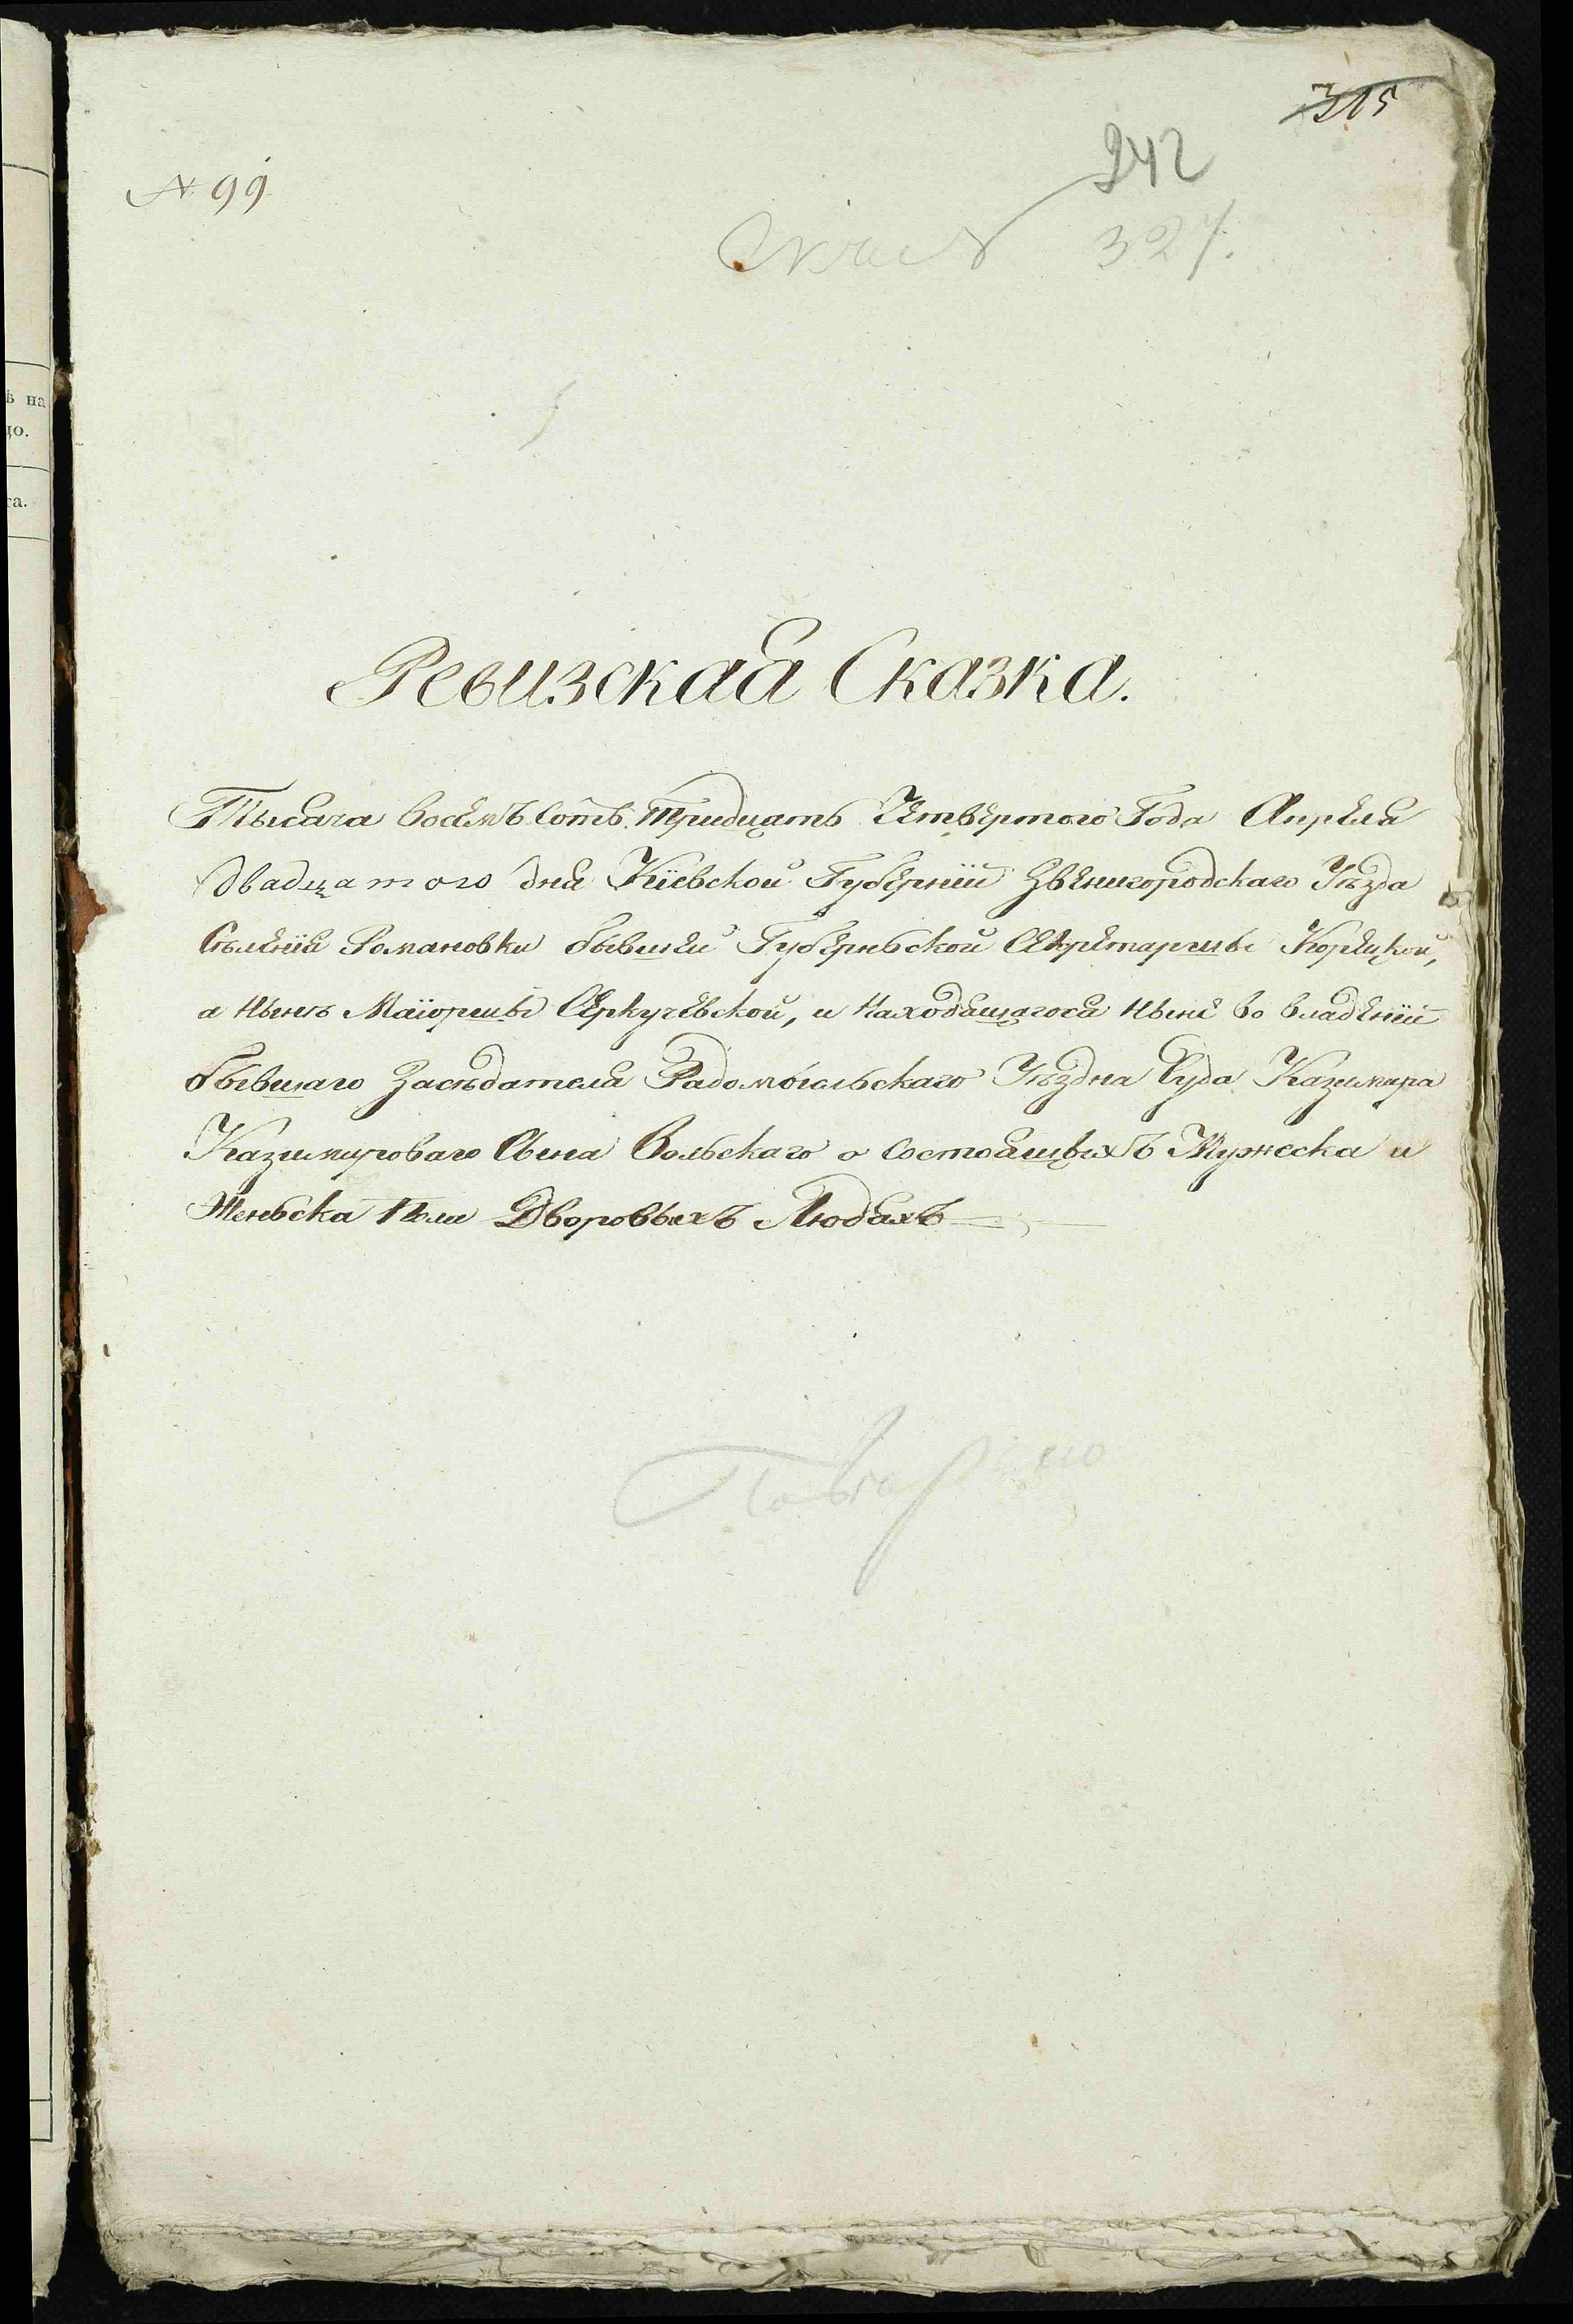 315
242
N 99
327.
Ревизская Сказка.
Тысяча восемъ сотъ тридцать Четвертого Года Апреля
двадцатого дня Кіевской Губерніи Звенигородскаго Уѣзда
Сѣленія Романовки бывшей Губерньской Секретарши Корецкой,
а нынѣ Маіорши Серкучевской, и находящагося ныне во владеніи
бывшаго Засѣдателя Радомысльскаго Уѣздна Суда Казимира
Казимироваго Сына Вольскаго о Состоящихъ Мужеска и
Женьска Пола Дворовыхъ Людяхъ
ѣ на
цо.
та.